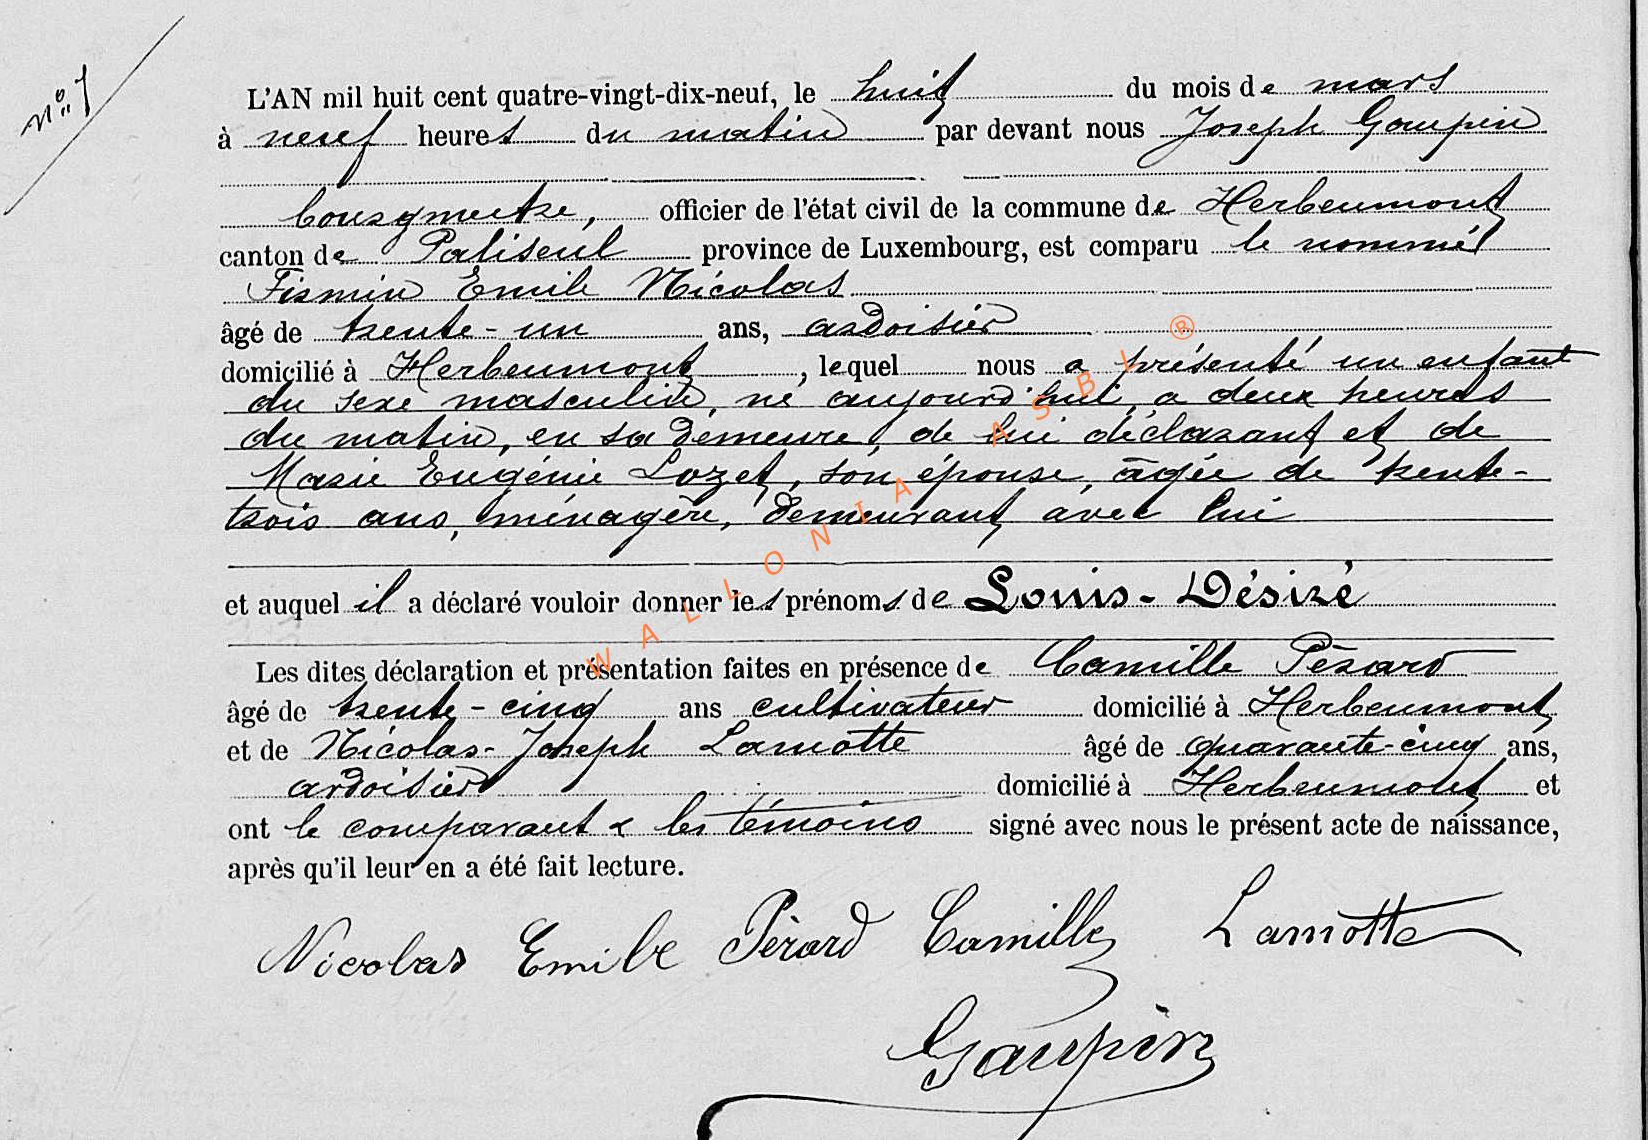 N° 7
L'AN mil huit cent quatre-vingt-dix-neuf, le huit du mois de mars
à neuf heures du matin par devant nous Joseph Gaupin
bourgmestre, officier de l'état civil de la commune de Herbeumont
canton de Paliseul province de Luxembourg, est comparu le nommé
Firmin Emile Nicolas
âgé de trente-un ans, ardoisier
domicilié à Herbeumont, lequel nous a présenté un enfant
du sexe masculin, né aujourd'hui, à deux heures
du matin, en sa demeure, de lui déclarant et de
Marie Eugénie Lozet, son épouse, âgée de trente-
trois ans, ménagère, demeurant avec lui
et auquel il a déclaré vouloir donner les prénoms de Louis-Désiré
Les dites déclaration et présentation faites en présence de Camille Pèrard
âgé de trente-cinq ans cultivateur domicilié à Herbeumont
et de Nicolas-Joseph Lamotte âgé de quarante-cinq ans,
ardoisier domicilié à Herbeumont et
ont le comparant & les témoins signé avec nous le présent acte de naissance,
après qu'il leur en a été fait lecture.
Nicolas Emile Pèrard Camille Lamotte
Gaupin
WALLONIA ASBL ®